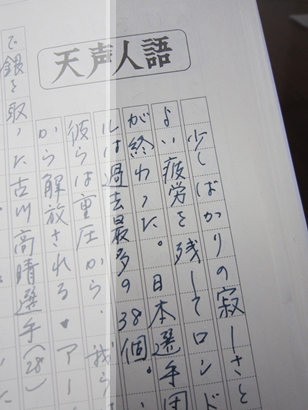 天声人語
少しばかりの寂しさと
よい疲労を残してロンド
が終わった。日本選手団
ルは過去最多の38個。
彼らは重圧から、我ら
から解放される。アー
で銀を取った古川高晴選手(28)